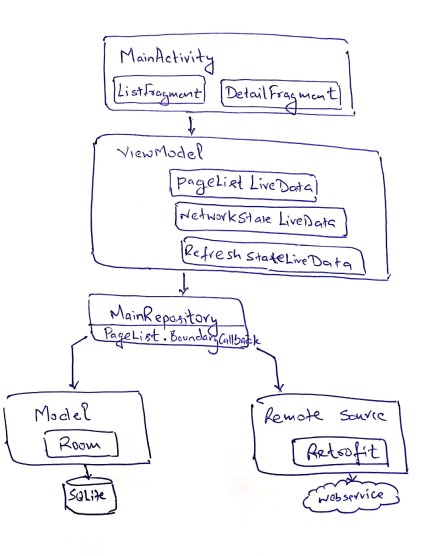 MainActivity
ListFragment DetailFragment
ViewModel
PageList LiveData
NetworkState LiveData
Refresh StateLiveData
MainRepository
PageList.BoundaryCallback
Model Remote Source
Room Retrofit
SQLite webservice